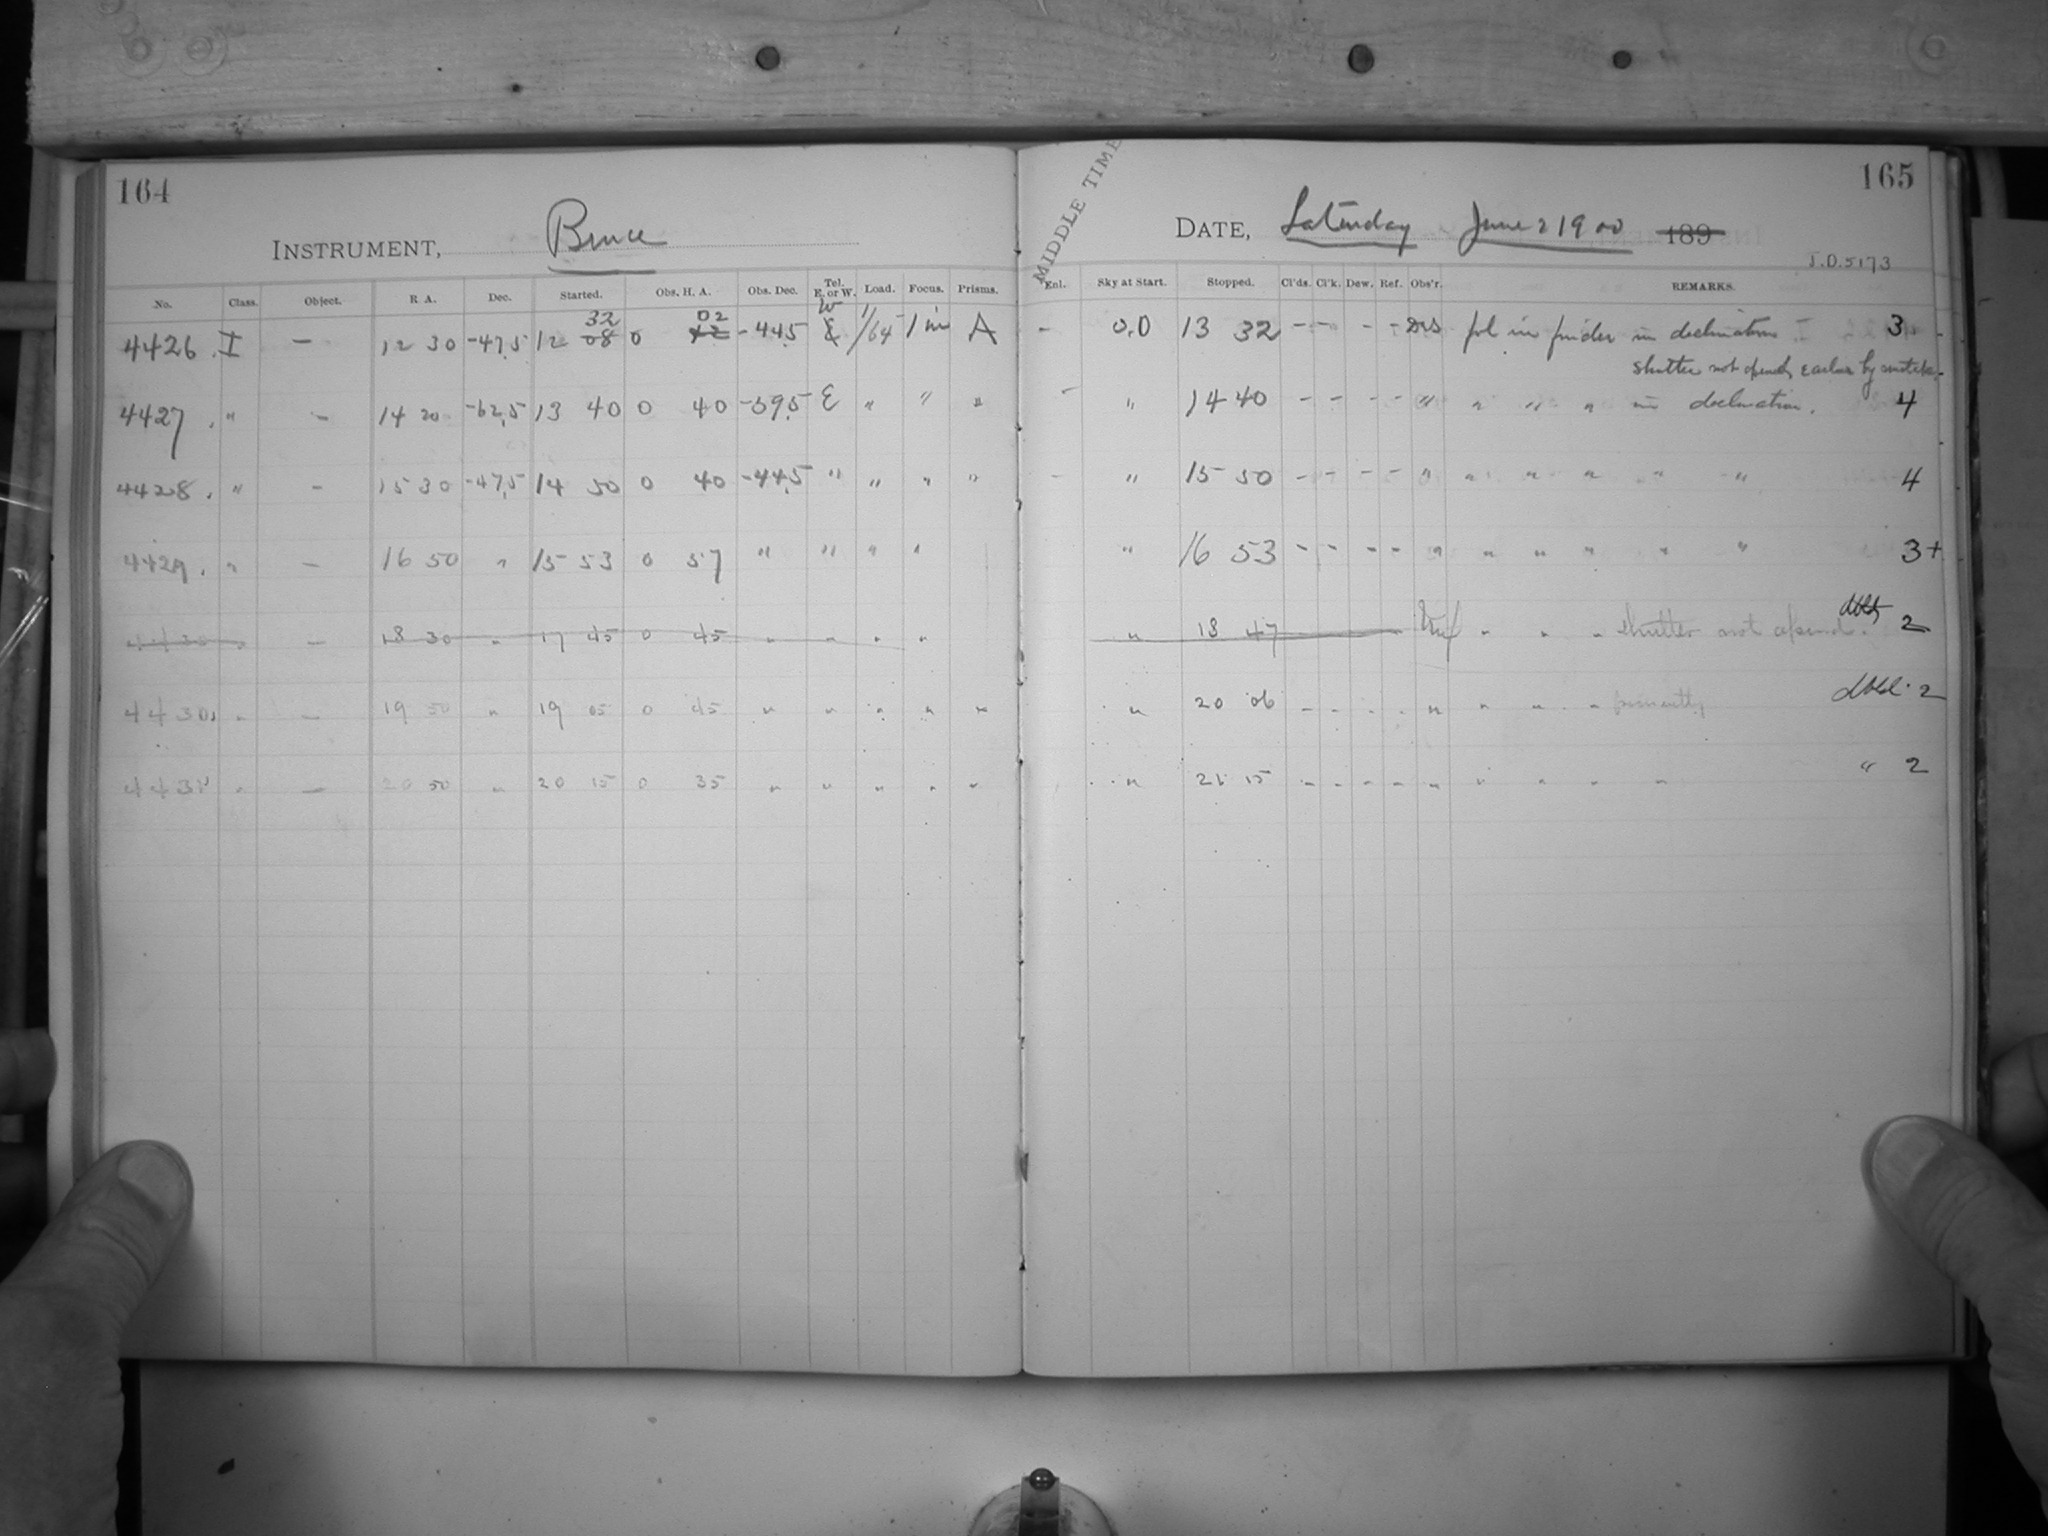 164
INSTRUMENT, Bruce
No. Class. Object. R. A. Dec. Started. Obs. H. A. Obs. Dec. Tel. E. or W. Load. Focus. Prisms.
32 02 W
4426. I — 12 30 -47,5 12 08 0 42 -44,5 E 1/64 1 in A
4427. " — 14 20 -62,5 13 40 0 40 -59,5 E " " "
4428. " — 15 30 -47,5 14 50 0 40 -44,5 " " " "
4429. " — 16 50 " 15 53 0 57 " " " "
4430 . — 18 30 " 17 45 0 45 " " " "
4430. " — 19 50 " 19 05 0 45 " " " " "
4431 " — 20 50 " 20 15 0 35 " " " " "
MIDDLE TIME
165
DATE, Saturday June 2 1900 189
J.D. 5173
Enl. Sky at Start. Stopped. Cl'ds. Cl'k. Dew. Ref. Obs'r. REMARKS.
— 0.0 13 32 — — — — fol in finder in declination 3
shutter not opened earlier by mistake.
— " 14 40 — — — — " " " " in declination. 4
— " 15 50 — — — — " " " " " " 4
" 16 53 — — — — " " " " " " 3+
" 18 47 " " " shutter not opened. dbld 2
" 20 06 — — — — " " " " dbld. 2
" 21 15 — — — — " " " " " " 2